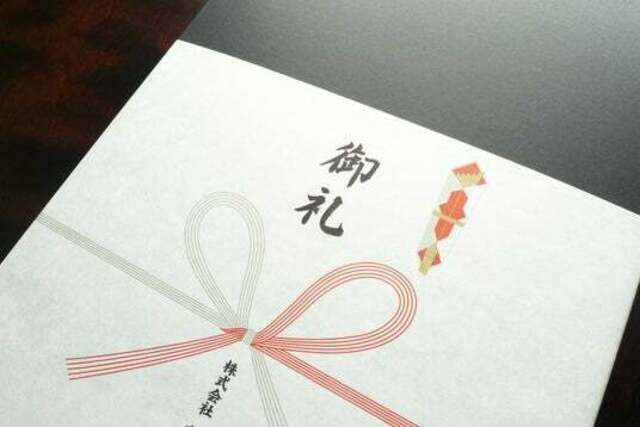 御礼
株式会社